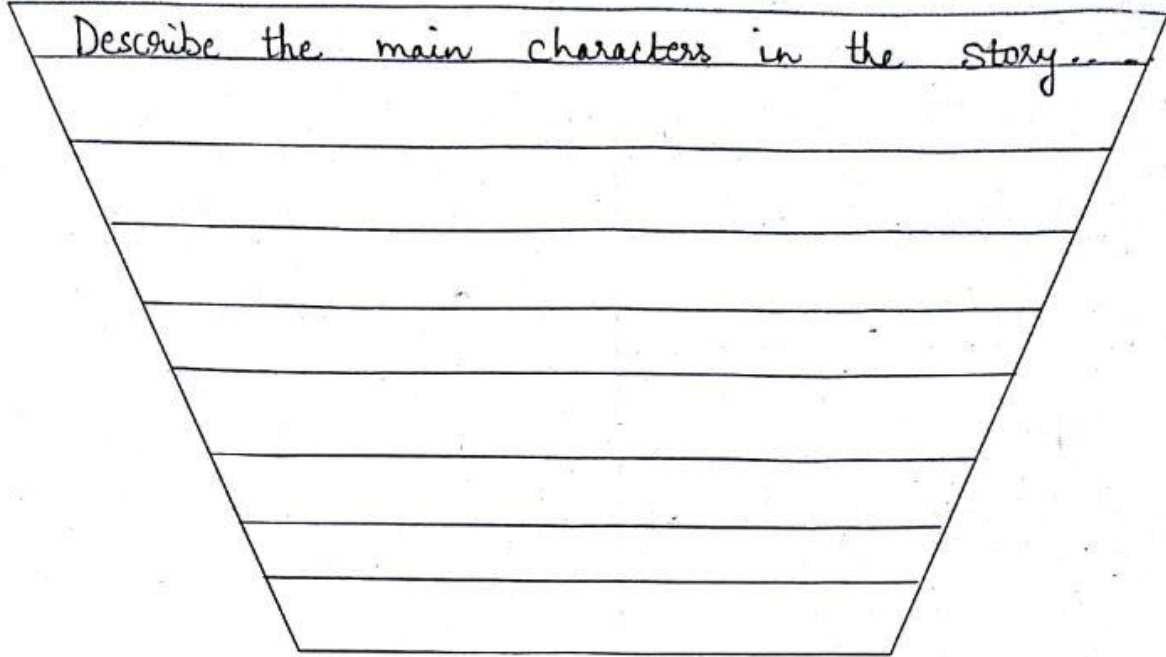 Describe the main characters in the story.....